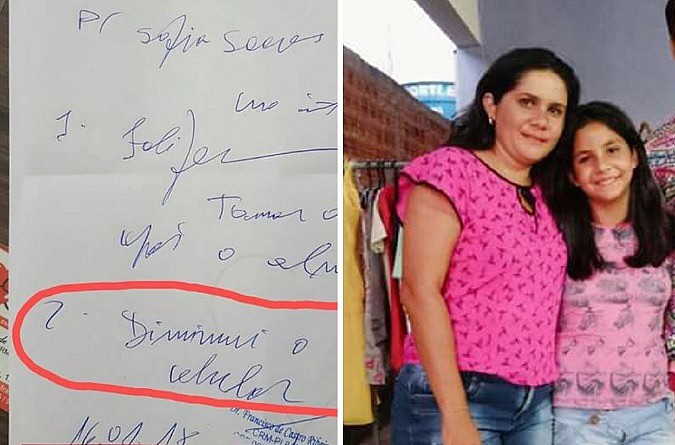 P/ Sofia Soares
Uso int
1. Folifer
Tomar
após o almo
2. Diminuir o
celular
16.01.18
Dr. Francisco de Castro Ribeiro
CRM-PI